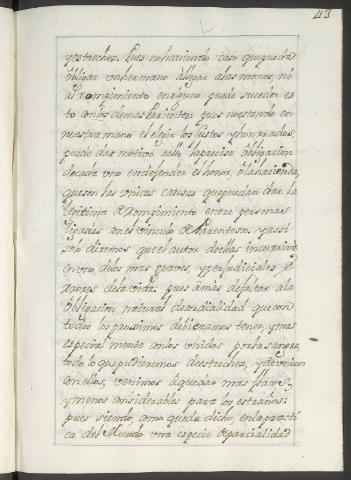 43
y estrechez. Pues no haviendo caso que pueda
obligar un hermano a llegar a las manos, nó
al rompimiento en alguno puede suceder es
to con los demas Parientes: pues no estando en
nuestra mano el elegir los justos y honrrados,
puede dar motivo a ello la precisa obligacion
de cada uno en defender el honor, ó la hacienda,
que son las unicas causas que puedan dar la
lexitima de rompimiento entre personas
ligadas con el vinculo de Parentesco. y assi
solo diremos que el autor de ellas incurrirá
en uno de los mas graves, y perjudiciales E
rrores de la vida: pues á mas de faltar a la
obligacion natural de cordialidad que con
todos los proximos debieramos tener, y mas
especial mente con los unidos por la sangre,
todo lo que pudieremos de estrechez, y de union
con ellos, venimos á quedar mas flacos,
y menos considerables para los estraños:
pues siendo, como queda dicho, en la practi
ca del Mundo una especie de parcialidad